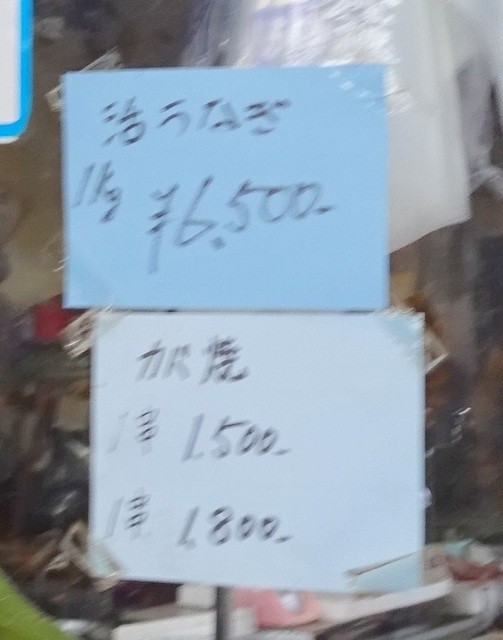 活うなぎ
1kg ¥6,500-
カバ焼
1串 1,500-
1串 1,800-